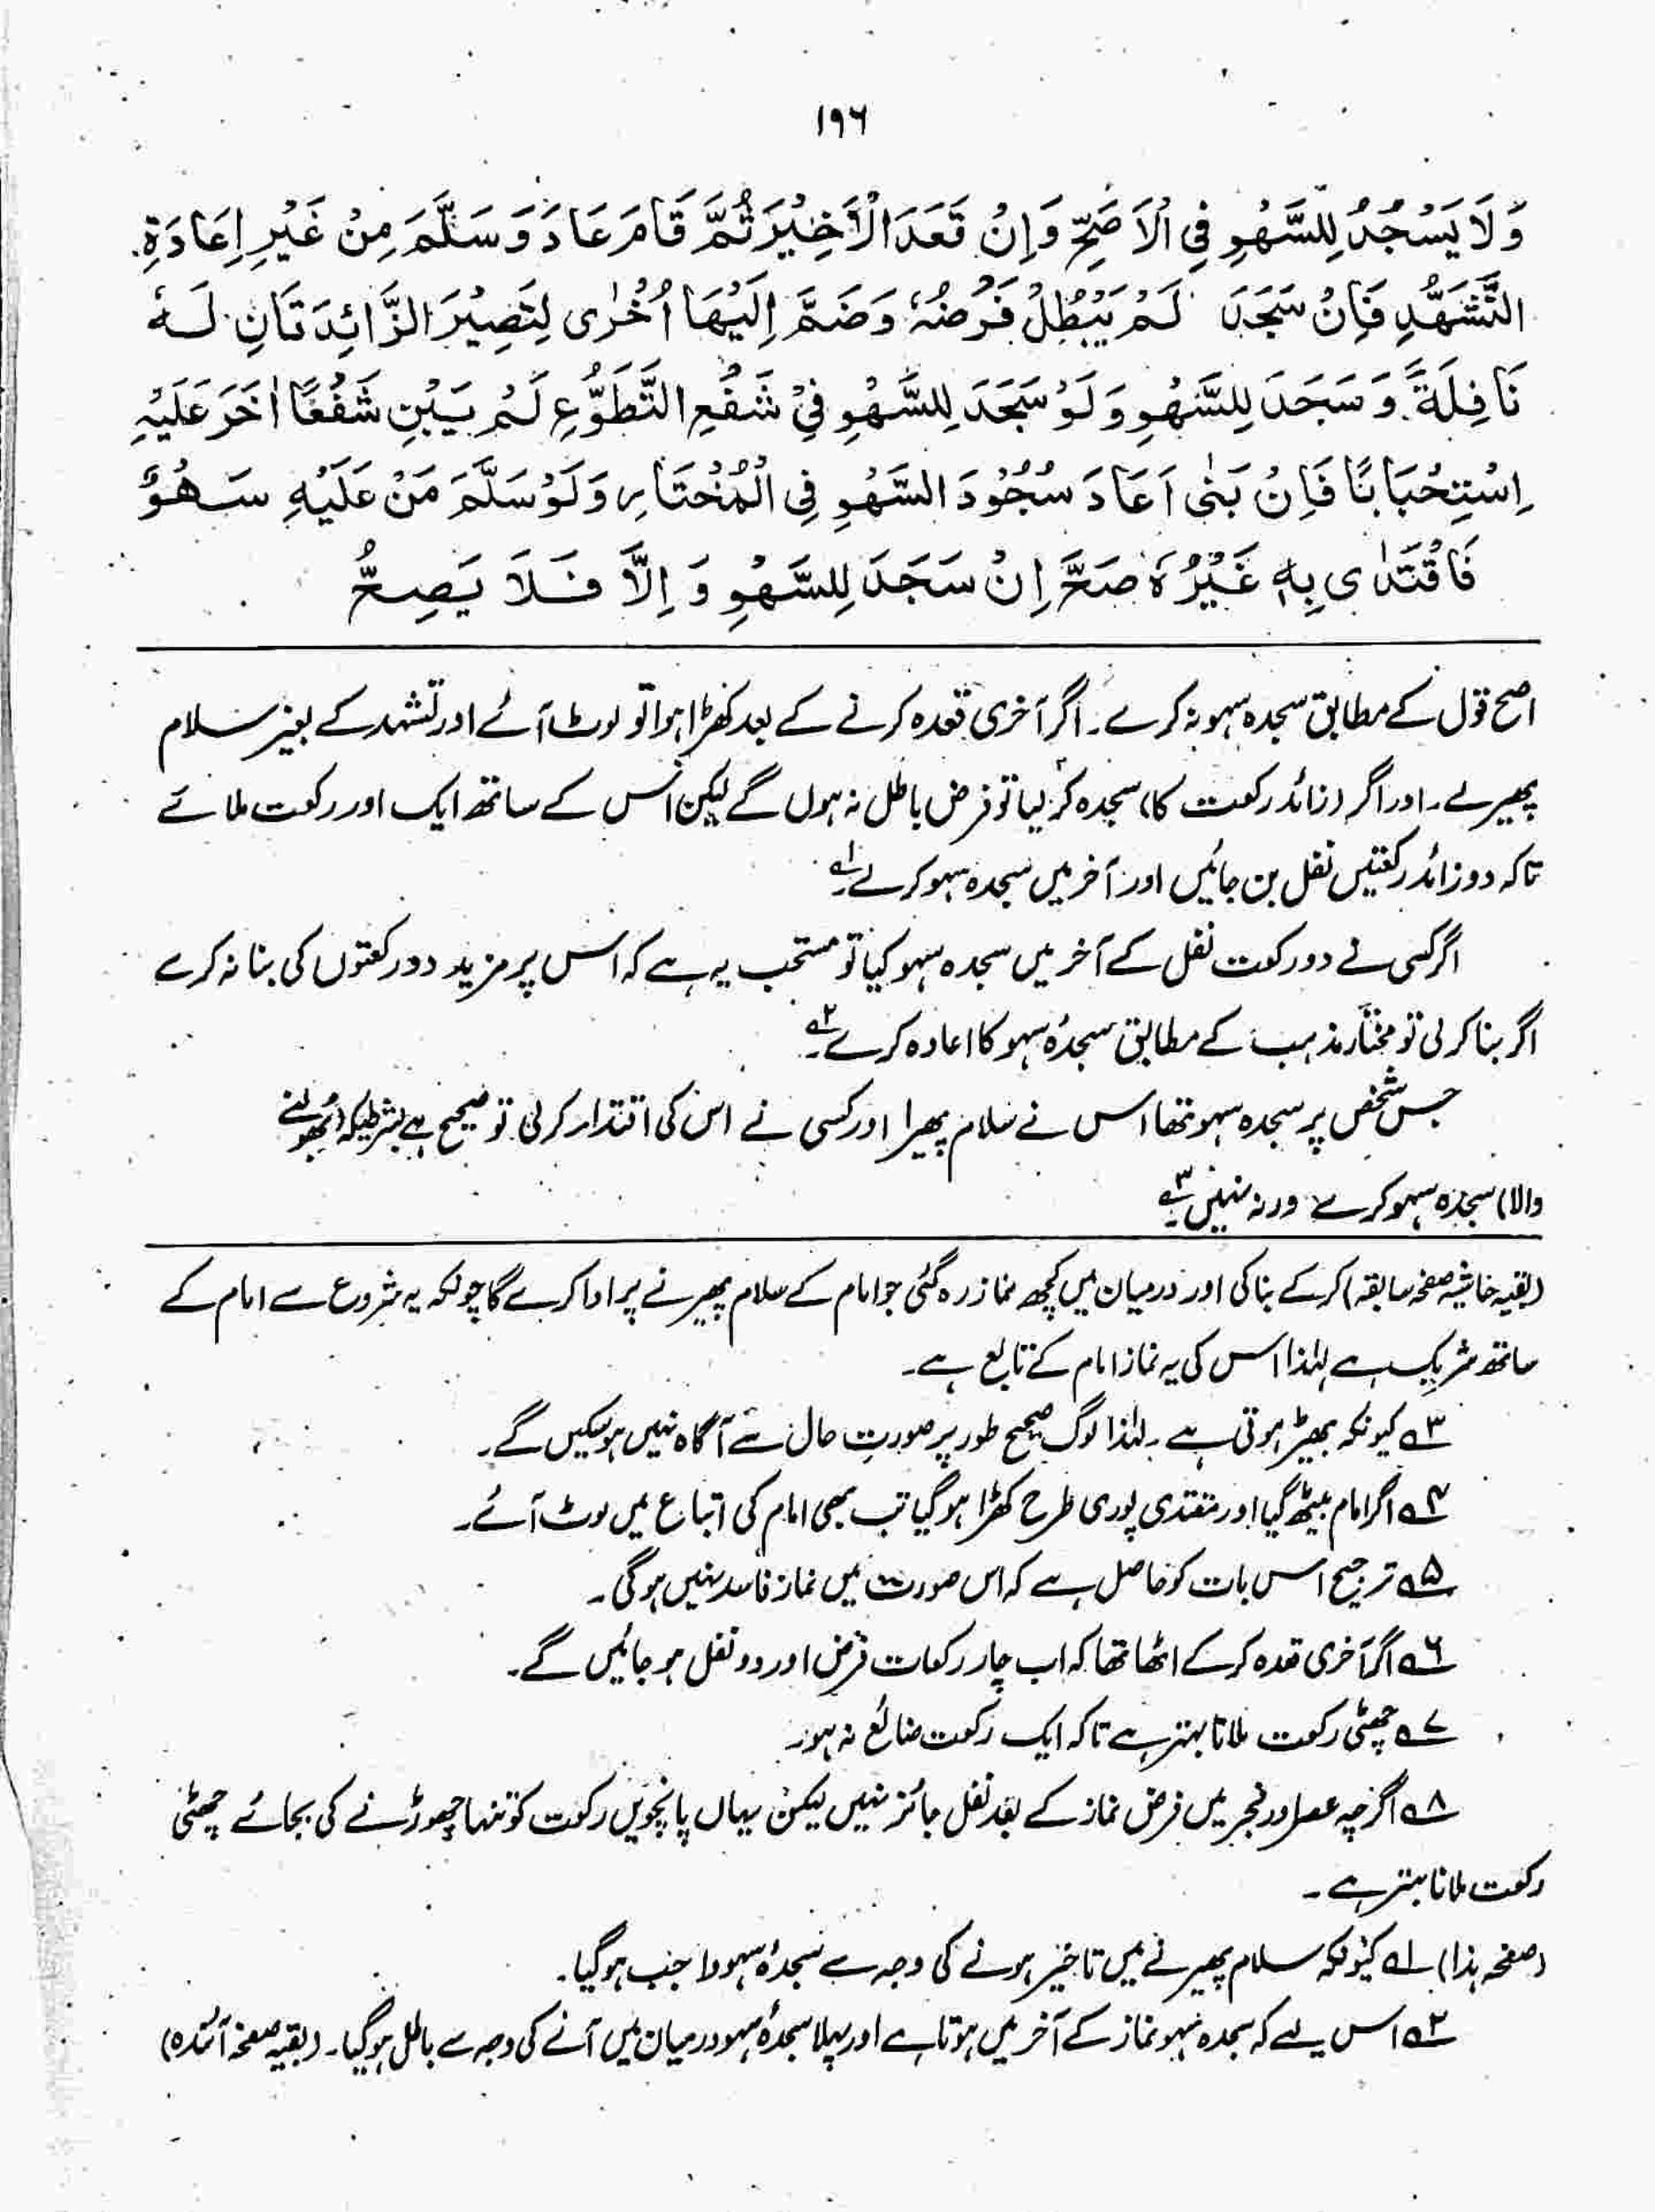 ۱۹۶
وَلَا يَسْجُدُ لِلسَّهْوِ فِى الْاَصَحِّ وَاِنْ قَعَدَ الْاَخِيْرَ ثُمَّ قَامَ عَادَ وَسَلَّمَ مِنْ غَيْرِ اِعَادَةِ
التَّشَهُّدِ فَاِنْ سَجَدَ لَمْ يَبْطُلْ فَرْضُهٗ وَضَمَّ اِلَيْهَا اُخْرٰى لِتَصِيْرَ الزَّائِدَتَانِ لَهٗ
نَافِلَةً وَسَجَدَ لِلسَّهْوِ وَلَوْ سَجَدَ لِلسَّهْوِ فِىْ شَفْعِ التَّطَوُّعِ لَمْ يَبْنِ شَفْعًا اٰخَرَ عَلَيْهِ
اِسْتِحْبَابًا فَاِنْ بَنٰى اَعَادَ سُجُوْدَ السَّهْوِ فِى الْمُخْتَارِ وَلَوْ سَلَّمَ مَنْ عَلَيْهِ سَهْوٌ
فَاقْتَدٰى بِهٖ غَيْرُهٗ صَحَّ اِنْ سَجَدَ لِلسَّهْوِ وَاِلَّا فَلَا يَصِحُّ
اصح قول کے مطابق سجدہ سہو نہ کرے۔ اگر آخری قعدہ کرنے کے بعد کھڑا ہوا تو لوٹ آئے اور تشہد کے بغیر سلام
پھیرے۔ اور اگر (زائد رکعت کا) سجدہ کر لیا تو فرض باطل نہ ہوں گے لیکن اس کے ساتھ ایک اور رکعت ملائے
تاکہ دو زائد رکعتیں نفل بن جائیں اور آخر میں سجدہ سہو کرلے ۱؎
اگر کسی نے دو رکعت نفل کے آخر میں سجدہ سہو کیا تو مستحب یہ ہے کہ اس پر مزید دو رکعتوں کی بنا نہ کرے
اگر بنا کرلی تو مختار مذہب کے مطابق سجدۂ سہو کا اعادہ کرے ۲؎
جس شخص پر سجدہ سہو تھا اس نے سلام پھیرا اور کسی نے اس کی اقتدار کرلی تو صحیح ہے بشرطیکہ (بھولنے
والا) سجدہ سہو کرے ورنہ نہیں ۳؎
(بقیہ حاشیہ صفحہ سابقہ) کرکے بنا کی اور درمیان میں کچھ نماز رہ گئی جو امام کے سلام پھیرنے پر ادا کرے گا چونکہ یہ شروع سے امام کے
ساتھ شریک ہے لہٰذا اس کی یہ نماز امام کے تابع ہے۔
۳؎ کیونکہ بھیڑ ہوتی ہے۔ لہٰذا لوگ صحیح طور پر صورت حال سے آگاہ نہیں ہو سکیں گے۔
۴؎ اگر امام بیٹھ گیا اور مقتدی پوری طرح کھڑا ہوگیا تب بھی امام کی اتباع میں لوٹ آئے۔
۵؎ ترجیح اس بات کو حاصل ہے کہ اس صورت میں نماز فاسد نہیں ہوگی۔
۶؎ اگر آخری قعدہ کرکے اٹھا تھا کہ اب چار رکعات فرض اور دو نفل ہو جائیں گے۔
۷؎ چھٹی رکعت ملانا بہتر ہے تاکہ ایک رکعت ضائع نہ ہو۔
۸؎ اگرچہ عصر اور فجر میں فرض نماز کے بعد نفل جائز نہیں لیکن یہاں پانچویں رکعت کو تنہا چھوڑنے کی بجائے چھٹی
رکعت ملانا بہتر ہے۔
(صفحہ ہذا) ۱؎ کیونکہ سلام پھیرنے میں تاخیر ہونے کی وجہ سے سجدۂ سہو واجب ہوگیا۔
۲؎ اس لیے کہ سجدہ سہو نماز کے آخر میں ہوتا ہے اور پہلا سجدۂ سہو درمیان میں آنے کی وجہ سے باطل ہوگیا۔ (بقیہ صفحہ آئندہ)